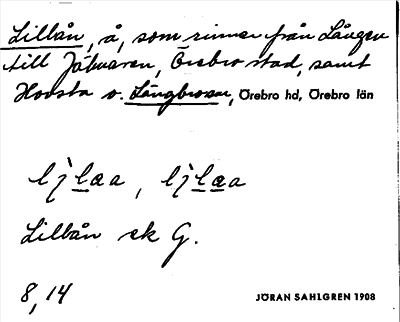 Lillån, å, som rinner från Lången
till Hjälmaren, Örebro stad, samt
Hovsta o. Längbrosn, Örebro hd, Örebro län
Lillån ek G.
8,14
JÖRAN SAHLGREN 1908